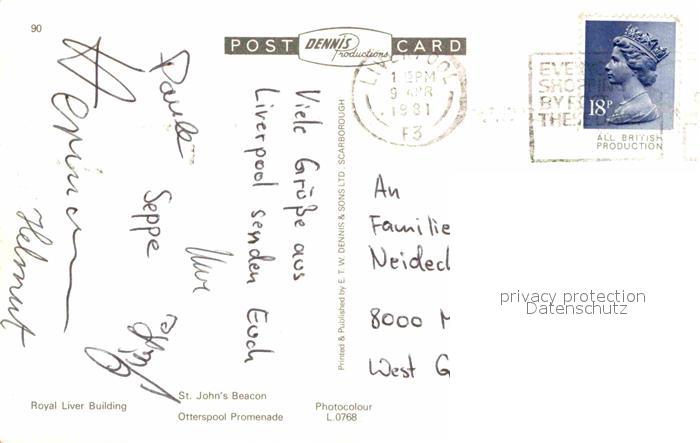 90
POST CARD
DENNIS
Productions
LIVERPOOL
1 15PM
9 APR
1981
F3
18P
ALL BRITISH
PRODUCTION
Viele Grüße aus
Liverpool senden Euch
Uwe
Seppe
Helmut
An
Familie
Neidec
8000 M
West G
privacy protection
Datenschutz
Printed & Published by E. T. W. DENNIS & SONS LTD., SCARBOROUGH
St. John's Beacon
Royal Liver Building
Otterspool Promenade
Photocolour
L.0768